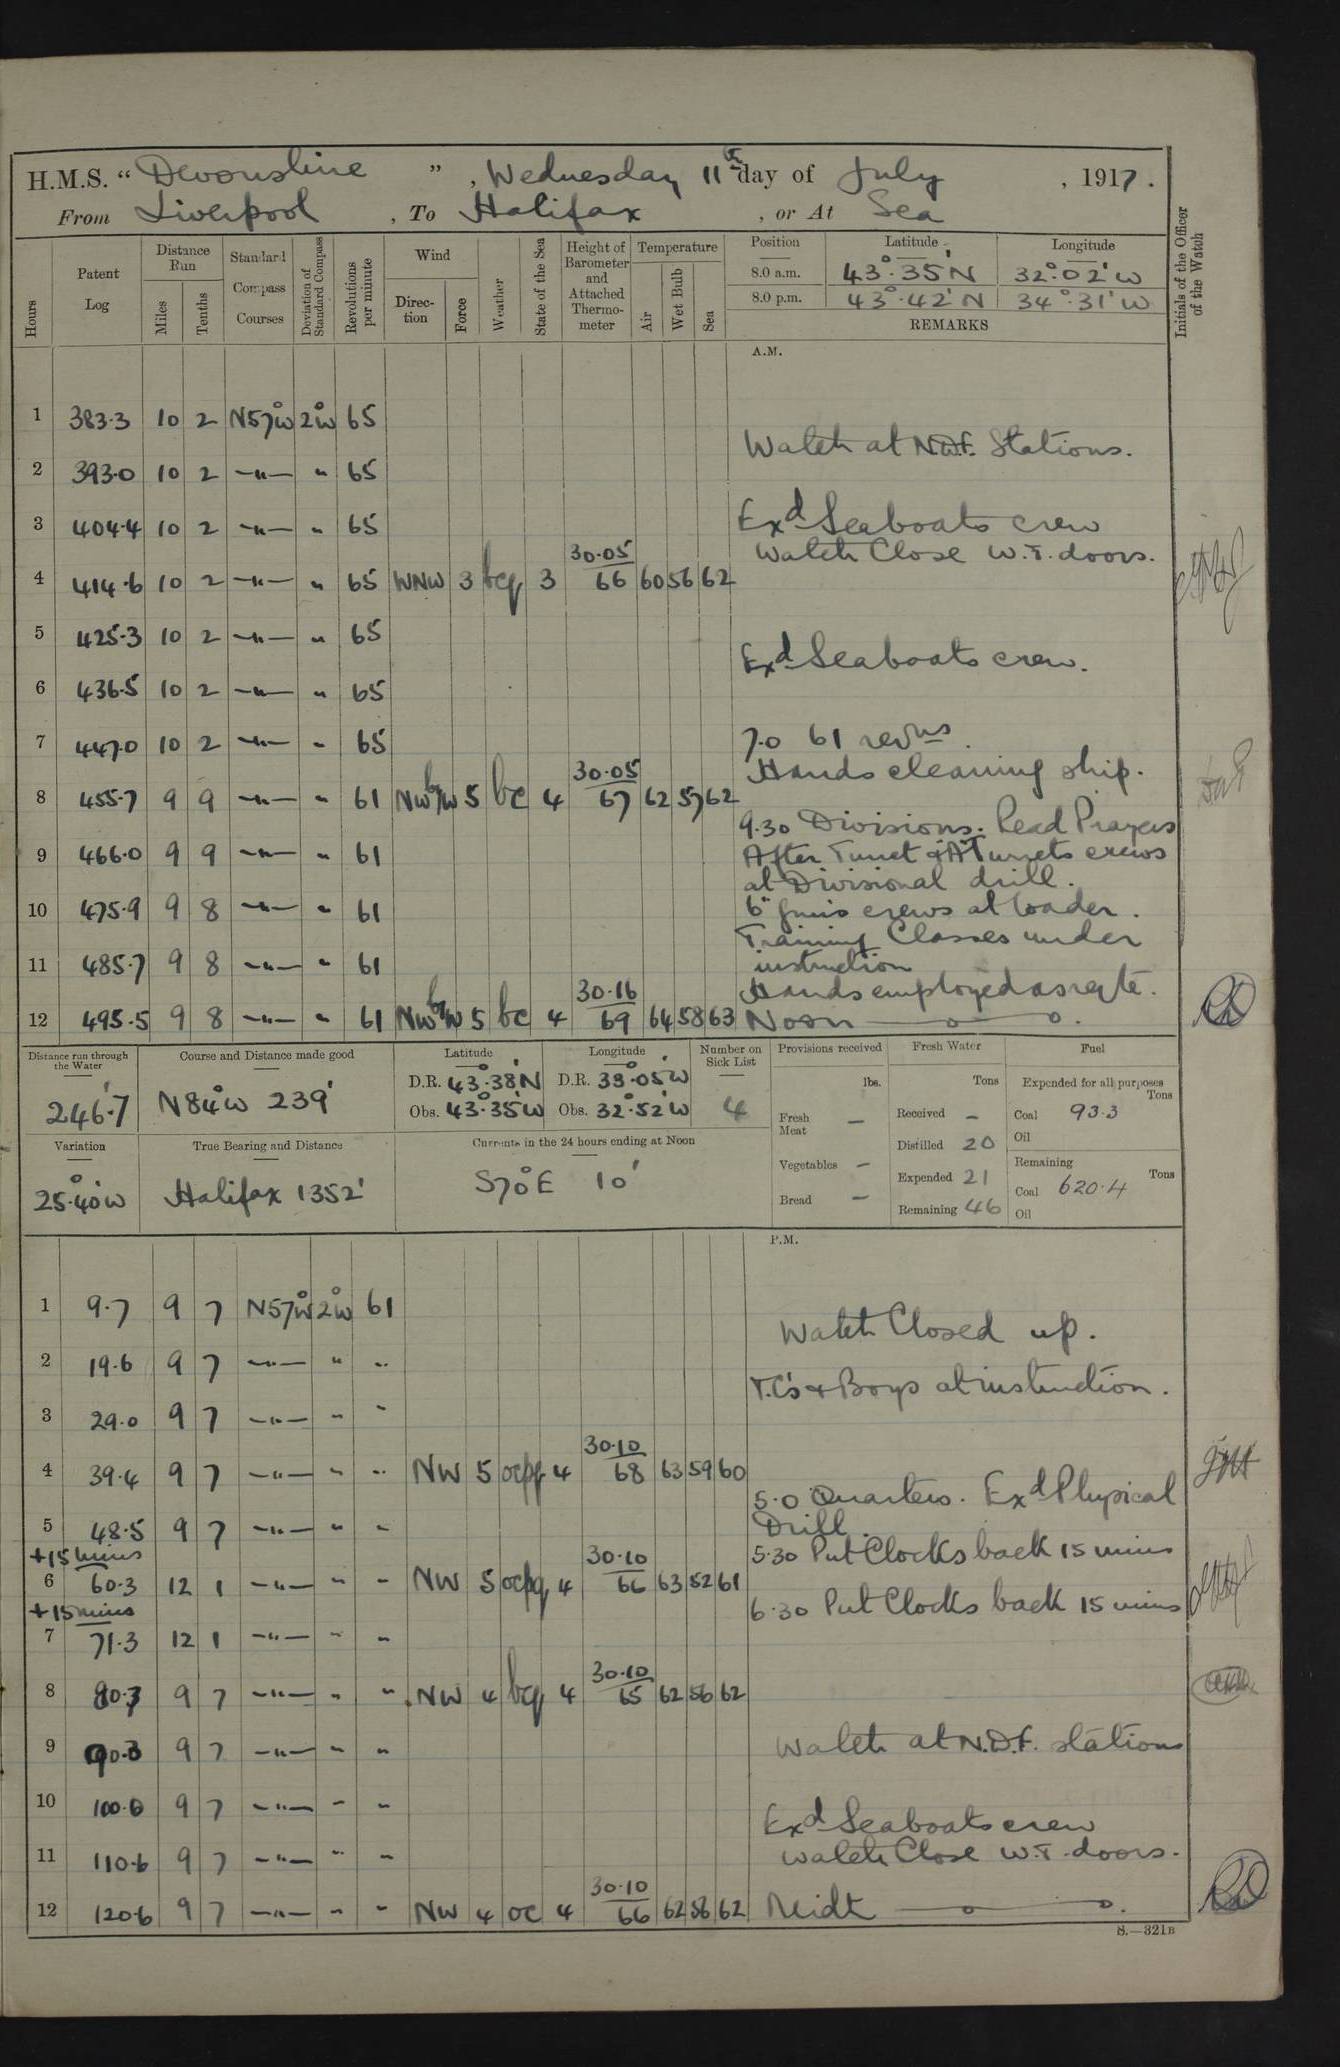 H.M.S. “Devonshire”, Wednesday 11th day of July, 1917.
From Liverpool, To Halifax, or At Sea
Hours
Patent Log
Distance Run
Miles
Tenths
Standard Compass Courses
Deviation of Standard Compass
Revolutions per minute
Wind
Direction
Force
Weather
State of the Sea
Height of Barometer and Attached Thermometer
Temperature
Air
Wet Bulb
Sea
Position Latitude Longitude
8.0 a.m. 43°.35'N 32°.02'W
8.0 p.m. 43°.42'N 34°.31'W
REMARKS
Initials of the Officer of the Watch
A.M.
1 383.3 10 2 N57°W 2°W 65
Watch at N.D.F. Stations.
2 393.0 10 2 —"— " 65
3 404.4 10 2 —"— " 65
Exd Seaboats crew
Watch Close W.T. doors.
4 414.6 10 2 —"— " 65 WNW 3 bcq 3 30.05 66 60 56 62
5 425.3 10 2 —"— " 65
Exd Seaboats crew.
6 436.5 10 2 —"— " 65
7 447.0 10 2 —"— " 65
7.0 61 revns.
Hands cleaning ship.
8 455.7 9 9 —"— " 61 NWbyW 5 bc 4 30.05 67 62 57 62
9.30 Divisions. Read Prayers
9 466.0 9 9 —"— " 61
After Turret & A Turrets crews
at Divisional drill.
10 475.9 9 8 —"— " 61
6" guns crews at loader.
Training Classes under
11 485.7 9 8 —"— " 61
instruction
Hands employed as reqte.
12 495.5 9 8 —"— " 61 NWbyW 5 bc 4 30.16 69 64 58 63
Noon
Distance run through the Water
246'.7
Course and Distance made good
N84°W 239'
Latitude
D.R. 43°.38'N
Obs. 43°.35'W
Longitude
D.R. 33°.05'W
Obs. 32°.52'W
Number on Sick List
4
Provisions received
lbs.
Fresh Meat —
Vegetables —
Bread —
Fresh Water
Tons
Received —
Distilled 20
Expended 21
Remaining 46
Fuel
Expended for all purposes
Tons
Coal 93.3
Oil
Remaining
Tons
Coal 620.4
Oil
Variation
25°.40'W
True Bearing and Distance
Halifax 1352'
Currents in the 24 hours ending at Noon
S70°E 10'
P.M.
1 9.7 9 7 N57°W 2°W 61
Watch Closed up.
2 19.6 9 7 —"— " "
T.C's & Boys at instruction.
3 29.0 9 7 —"— " "
4 39.4 9 7 —"— " " NW 5 ocpq 4 30.10 68 63 59 60
5.0 Quarters. Exd Physical
Drill.
5 48.5 9 7 —"— " "
+15 mins
5.30 Put Clocks back 15 mins
6 60.3 12 1 —"— " " NW 5 ocpq 4 30.10 66 63 52 61
+15 mins
6.30 Put Clocks back 15 mins
7 71.3 12 1 —"— " "
8 80.7 9 7 —"— " " NW 4 bcq 4 30.10 65 62 56 62
9 90.3 9 7 —"— " "
Watch at N.D.F. stations
10 100.6 9 7 —"— " "
Exd Seaboats crew
11 110.6 9 7 —"— " "
Watch Close W.T. doors.
12 120.6 9 7 —"— " " NW 4 oc 4 30.10 66 62 56 62
Midt
S.—321B